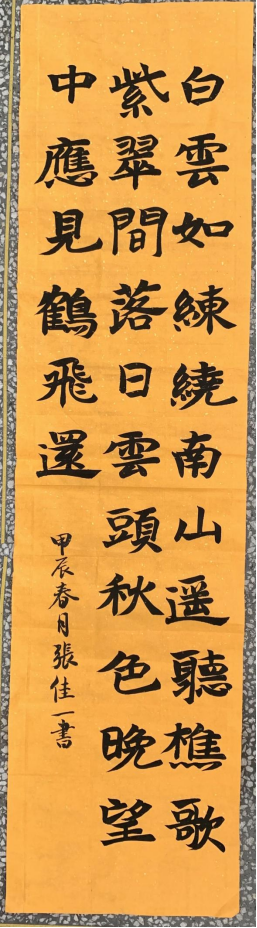 白雲如練繞南山遥聽樵歌
紫翠間落日雲頭秋色晚望
中應見鶴飛還
甲辰春月張佳一書